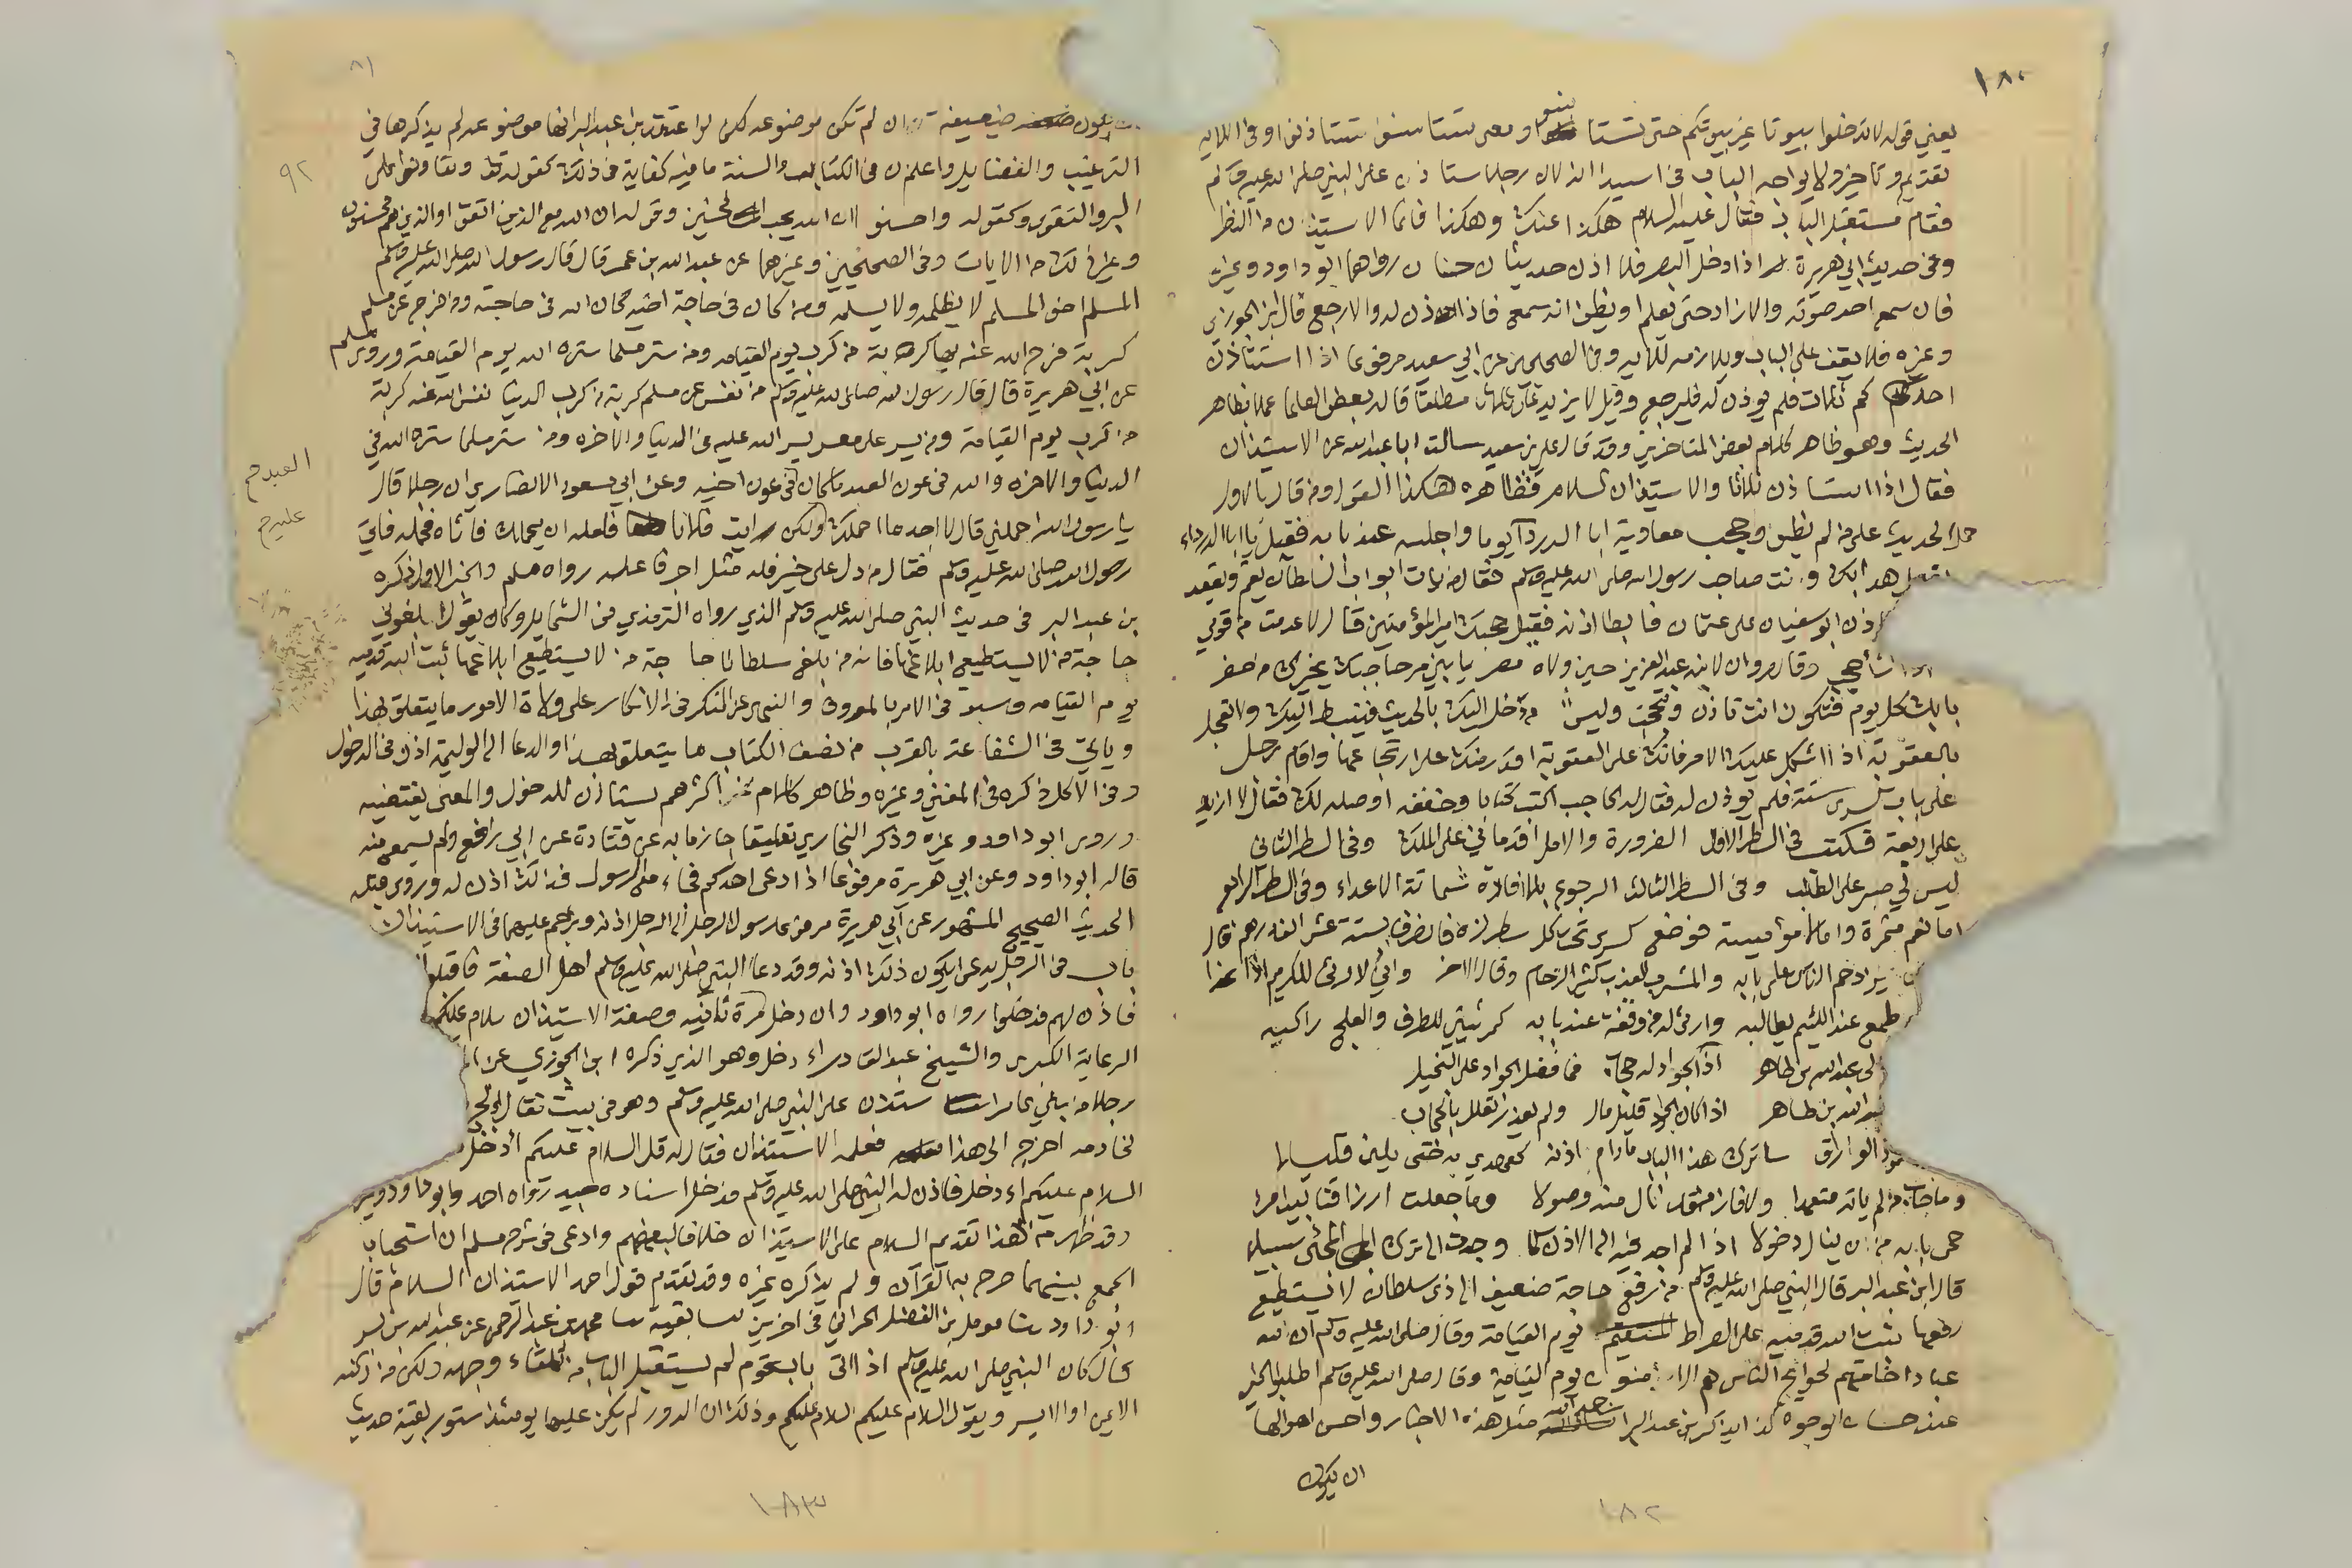 ١٨٠
يعني قوله لا تدخلوا بيوتا غير بيوتكم حتى تستأنسوا ومعنى تستأنسوا تستأذنوا وفي الآية
تقديم وتأخير ولا يواجه الباب في استيذانه لان رجلا ستاذن على النبي صلى الله عليه وسلم
فقام مستقبل الباب فقال عليه السلام هكذا عنك وهكذا فانما الاستيذان من النظر
وفي حديث ابي هريرة اذا دخل البصر فلا اذن حديثان حسنان رواهما ابو داود وغيره
فان سمع احد صوته والا زاد حتى يعلم او يظن انه سمع فاذا اذن له والا رجع قال ابن الجوزي
وغيره فلا يقف على الباب ويلازمه للآية وفي الصحيحين عن ابي سعيد مرفوعا اذا استأذن
احدكم ثلاث فلم يوذن له فليرجع وقيل لا يزيد على ثلاث مطلقا قاله بعض العلما عملا بظاهر
الحديث وهو ظاهر كلام بعض المتاخرين وقد قال علي بن سعيد سالت ابا عبد الله عن الاستيذان
فقال اذا استاذن ثلاثا والاستيذان السلام فظاهره هكذا القول ومن قال بالاول
حمل الحديث على من لم يظن وحجب معاوية ابا الدرداء يوما واجلسه عند بابه فقيل يا ابا الدرداء
هذا بك وانت صاحب رسول الله صلى الله عليه وسلم فقال من يات ابواب السلطان يقم ويقعد
ذن ابو سفيان على عثمان فابطا اذنه فقيل حجبك امير المؤمنين قال لا عدمت من قومي
وقال مروان لابنه عبد العزيز حين ولاه مصر يا بني مر حاجبك يخبرك من حضر
بابك كل يوم فتكون انت تاذن وتحجب وليس من دخل اليك بالحديث فينبسط اليك ولا تعجل
بالعقوبة اذا اشكل عليك الامر فانك على العقوبة اقدر منك على ارتجاعها واقام رجل
على باب كسرى سنة فلم يوذن له فقال له الحاجب اكتب كتابا وخففه اوصله لك فقال لا ازيد
على اربعة فكتب في السطر الاول الضرورة والامل اقدماني على الملك وفي السطر الثاني
ليس لي صبر على الطلب وفي السطر الثالث الرجوع بلا افادة شماتة الاعداء وفي السطر الرابع
اما نعم مثمرة واما لا مؤيسة فوقع كسرى تحت كل سطر زه فانصرف بستة عشر الف درهم قال
يزدحم الناس على بابه والمشرب العذب كثير الزحام وقال الاخر واني لارثي للكريم اذا غدا
طمع عند اللئيم يطالبه وارثي له من وقفة عند بابه كمرثيتي للطرف والعلج راكبه
لى عبد الله بن طاهر اذا كان الجواد له حجاب فما فضل الجواد على البخيل
عبد الله بن طاهر اذا كان الجواد قليل مال ولم يعذر تعلل بالحجاب
الوراق ساترك هذا الباب مادام اذنه كعهدي به حتى يلين قليلا
وما خاب من لم ياته متعمدا ولا فاز من قد نال منه وصولا وما جعلت ارزاقنا بيد امرئ
حمى بابه من ان ينال دخولا اذا لم اجد فيه الى الاذن سلما وجدت الى ترك المجئ سبيلا
قال ابن عبد البر قال النبي صلى الله عليه وسلم من رفع حاجة ضعيف الى ذي سلطان لا يستطيع
رفعها ثبت الله قدميه على الصراط يوم القيامة وقال صلى الله عليه وسلم ان لله
عبادا خلقهم لحوائج الناس هم الآمنون يوم القيامة وقال صلى الله عليه وسلم اطلبوا الخير
عند حسان الوجوه كذا يذكر ابن عبد البر رحمه الله مثل هذه الاخبار واحسن احوالها
ان يكون
١٨٢
٨١
٩٢
ضعيفة ان لم تكن موضوعه لكن لو اعتقد ابن عبد البر انها موضوعه لم يذكرها في
الترغيب والفضايل واعلم ان في الكتاب والسنة ما فيه كفاية في ذلك كقوله تعالى وتعاونوا على
البر والتقوى وكقوله واحسنوا ان الله يحب المحسنين وقوله ان الله مع الذين اتقوا والذين هم محسنون
وغير ذلك من الايات وفي الصحيحين وغيرهما عن عبد الله بن عمر قال قال رسول الله صلى الله عليه وسلم
المسلم اخو المسلم لا يظلمه ولا يسلمه ومن كان في حاجة اخيه كان الله في حاجته ومن فرج عن مسلم
كربة فرج الله عنه بها كربة من كرب يوم القيامه ومن ستر مسلما ستره الله يوم القيامة وروى مسلم
عن ابي هريرة قال قال رسول الله صلى الله عليه وسلم من نفس عن مسلم كربة من كرب الدنيا نفس الله عنه كربة
من كرب يوم القيامة ومن يسر على معسر يسر الله عليه في الدنيا والاخره ومن ستر مسلما ستره الله في
الدنيا والاخره والله في عون العبد ما كان في عون اخيه وعن ابي مسعود الانصاري ان رجلا قال
يا رسول الله احملني قال لا اجد ما احملك ولكن ايت فلانا فلعله ان يحملك فاتاه فحمله فاتى
رسول الله صلى الله عليه وسلم فقال من دل على خير فله مثل اجر فاعله رواه مسلم والخبر الاول ذكره
بن عبد البر في حديث النبي صلى الله عليه وسلم الذي رواه الترمذي في الشمايل وكان يقول ابلغوني
حاجة من لا يستطيع ابلاغها فانه من بلغ سلطانا حاجة من لا يستطيع ابلاغها ثبت الله قدميه
يوم القيامه وسبق في الامر بالمعروف والنهي عن المنكر في الانكار على ولاة الامور ما يتعلق بهذا
ويأتي في الشفاعة بالقرب من نصف الكتاب ما يتعلق بهذا والدعا الى الوليمة اذن في الدخول
وفي الاكل ذكره في المغني وغيره وظاهر كلام اكثرهم يستاذن للدخول والمعنى يقتضيه
وروى ابو داود وغيره وذكر البخاري تعليقا جازما به عن قتادة عن ابي رافع ولم يسمع منه
قاله ابو داود وعن ابي هريرة مرفوعا اذا دعى احدكم فجاء مع الرسول فذلك اذن له وروى قبله
الحديث الصحيح المشهور عن ابي هريرة مرفوعا رسول الرجل الى الرجل اذنه وترجم عليهما في الاستيذان
باب في الرجل يدعى ايكون ذلك اذنه وقد دعا النبي صلى الله عليه وسلم اهل الصفة فاقبلوا
فاذن لهم فدخلوا رواه ابو داود وان دخل مرة ثانيه وصفة الاستيذان سلام عليكم
الرعاية الكبرى والشيخ عبد القادر أدخل وهو الذي ذكره ابن الجوزي عن
رجلا من بني عامر استاذن على النبي صلى الله عليه وسلم وهو في بيت فقال ألج
لخادمه اخرج الى هذا فعلمه الاستيذان فقال له قل السلام عليكم أدخل
السلام عليكم أدخل فاذن له النبي صلى الله عليه وسلم فدخل اسناده جيد رواه احمد وابو داود وغيره
وقد ظهر من هذا تقديم السلام على الاستيذان خلافا لبعضهم وادعى في شرح مسلم ان استحباب
الجمع بينهما صرح به القرآن ولم يذكره غيره وقد تقدم قول احمد الاستيذان السلام قال
ابو داود ثنا مومل بن الفضل الحراني في اخرين ثنا بقية ثنا محمد بن عبد الرحمن عن عبد الله بن بسر
قال كان النبي صلى الله عليه وسلم اذا اتى باب قوم لم يستقبل الباب من تلقاء وجهه ولكن من ركنه
الايمن او الايسر ويقول السلام عليكم السلام عليكم وذلك ان الدور لم يكن عليها يومئذ ستور بقية حديث
العبد
عليه
١٨٣